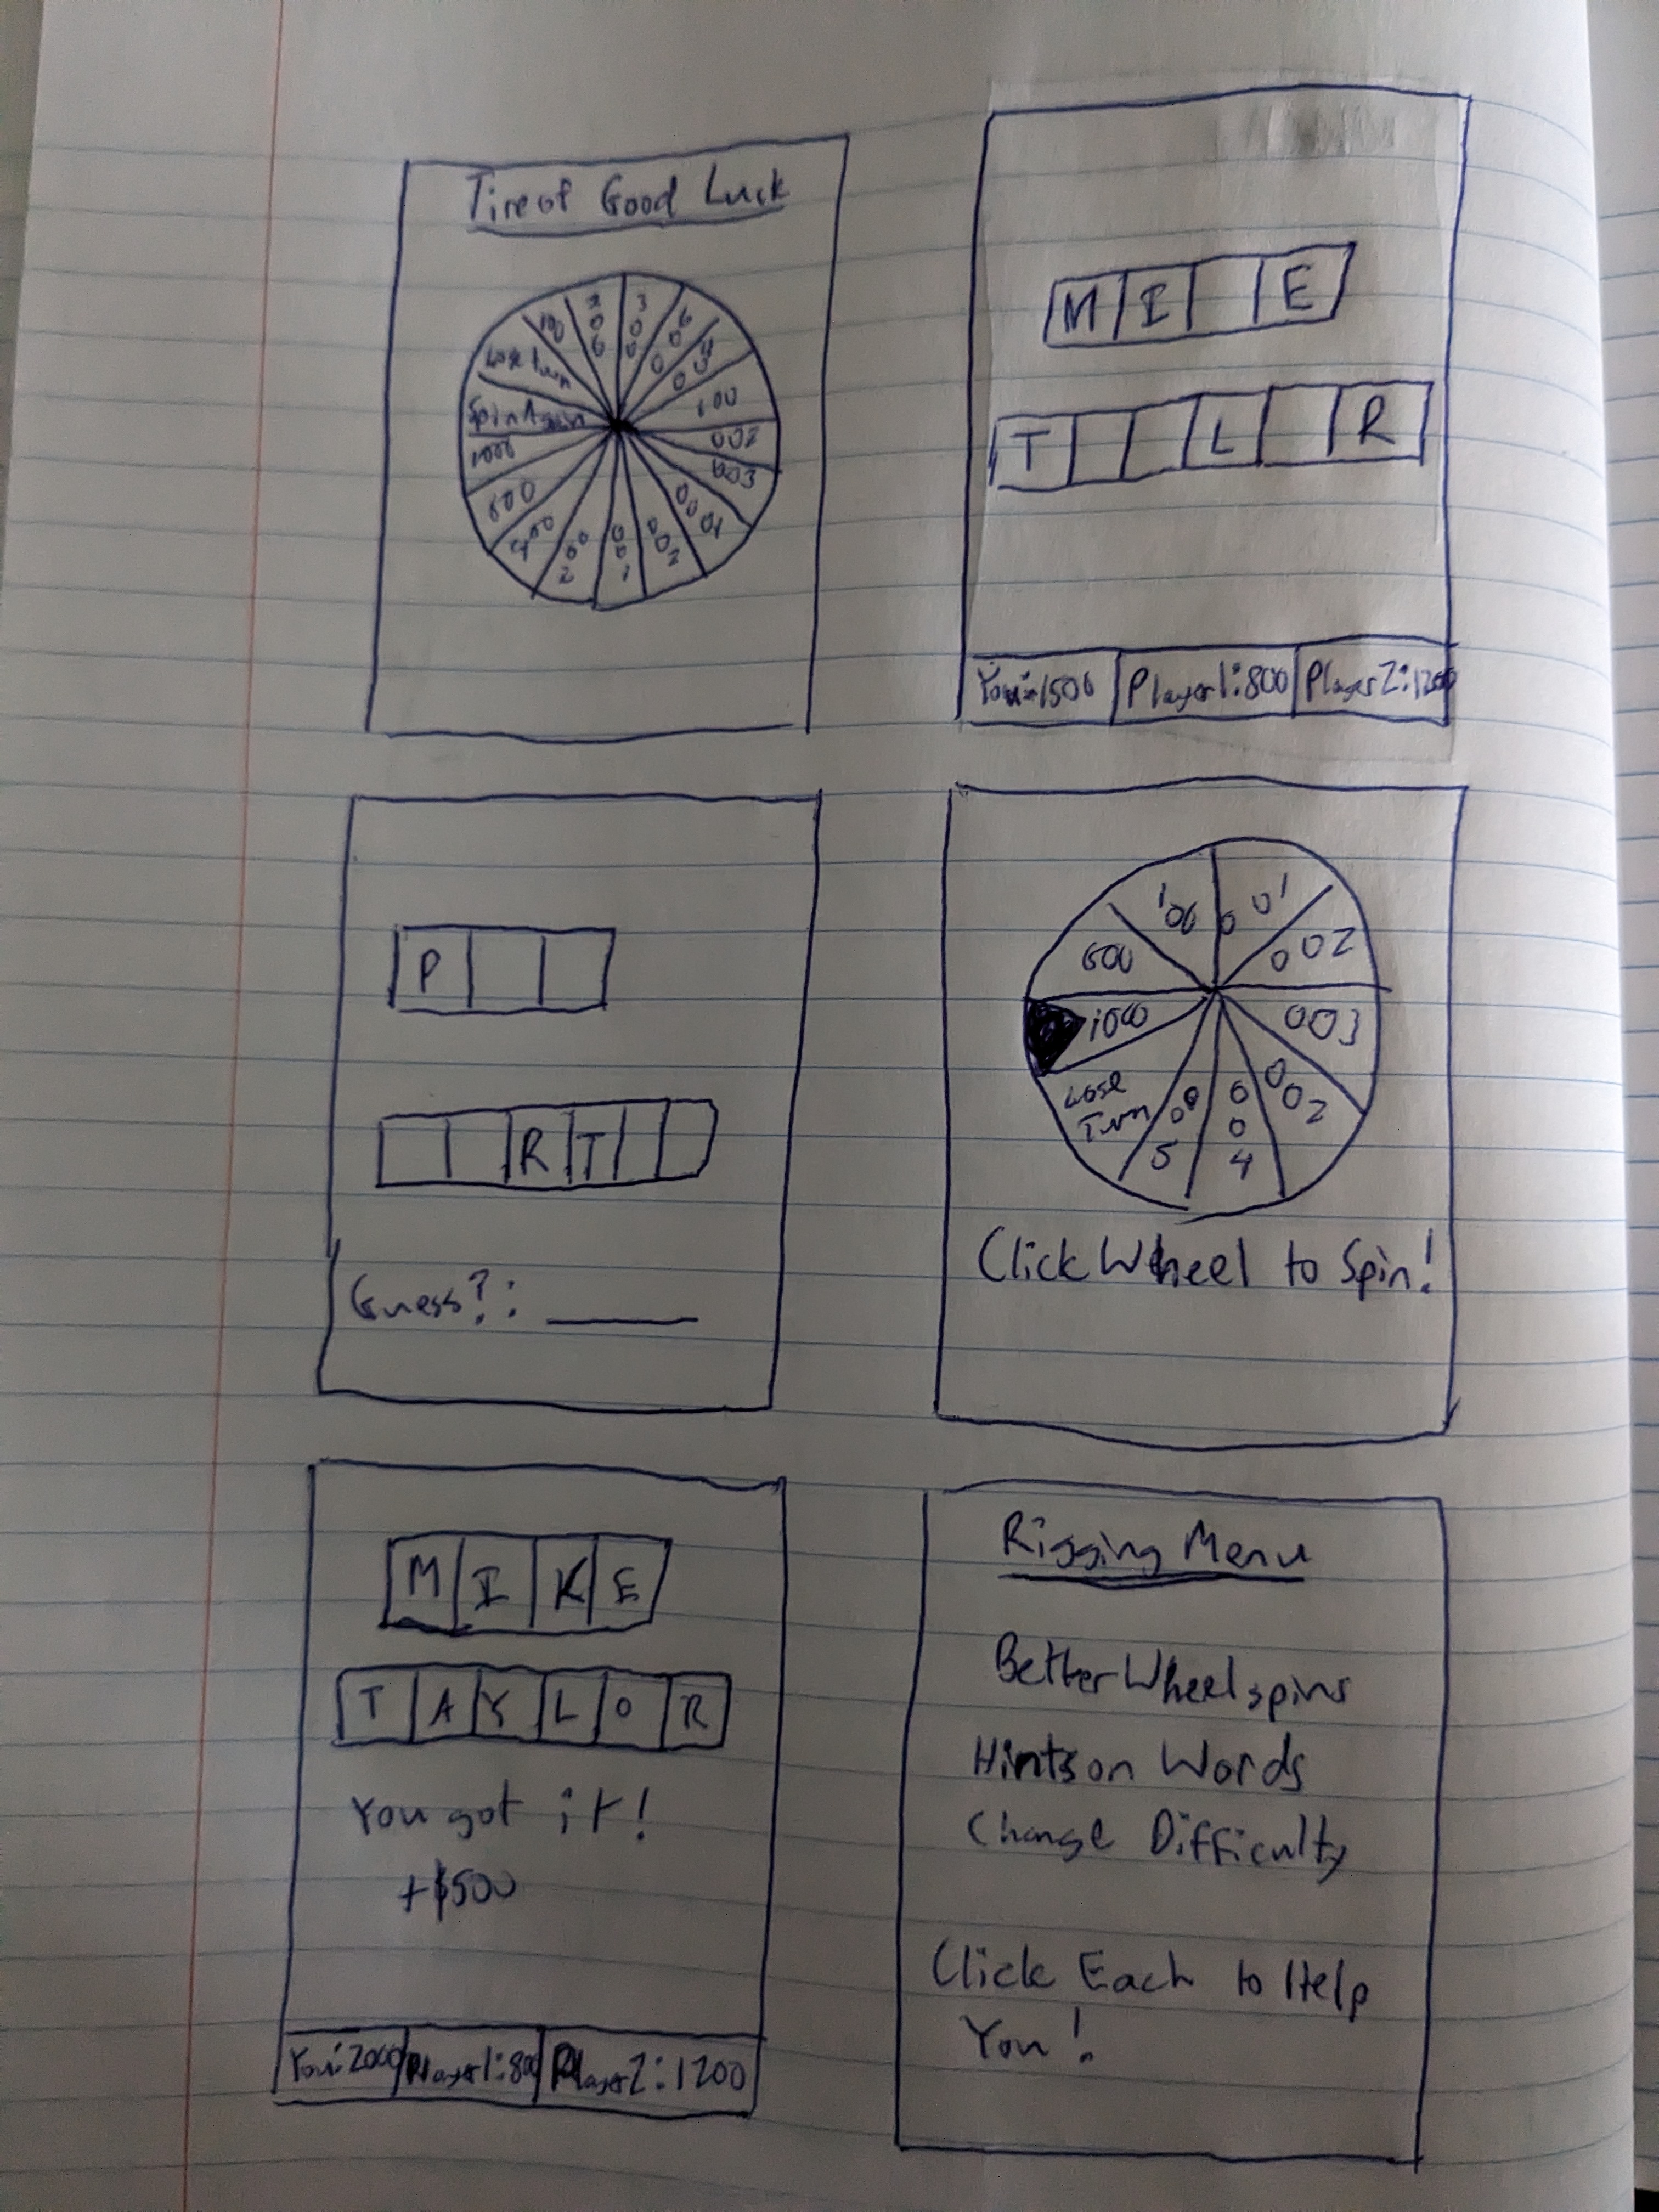 Tire of Good Luck
300
600
400
100
200
300
1000
200
100
200
400
800
1000
Spin Again
Lose turn
100
M I E
T L R
You: 1500 Player 1: 800 Player 2: 1200
P
R T
Guess?:
100
200
300
200
400
500
Lose
Turn
1000
600
100
Click Wheel to Spin!
M I K E
T A Y L O R
You got it!
+$500
You: 2000 Player 1: 800 Player 2: 1200
Rigging Menu
Better Wheel spins
Hints on Words
Change Difficulty
Click Each to Help
You!